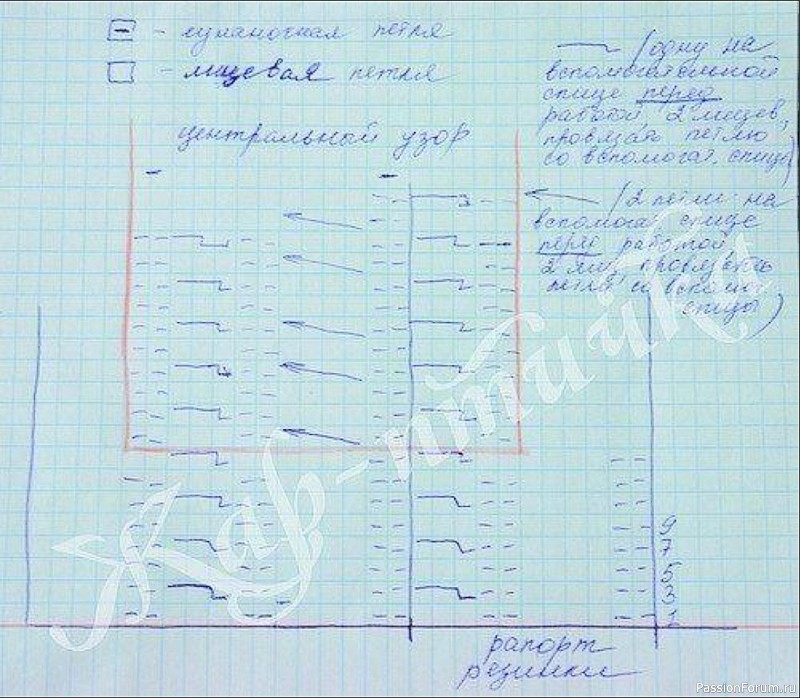 - изнаночная петля
- лицевая петля
(одну на
вспомогательной
спице перед
работой, 2 лицев,
провязать петлю
со вспомогат. спицы)
центральный узор
(2 петли на
вспомогат спице
перед работой
2 лиц, провязать
петли со вспомог
спицы)
Жар-птичка
9
7
5
3
1
рапорт
резинки
PassionForum.ru